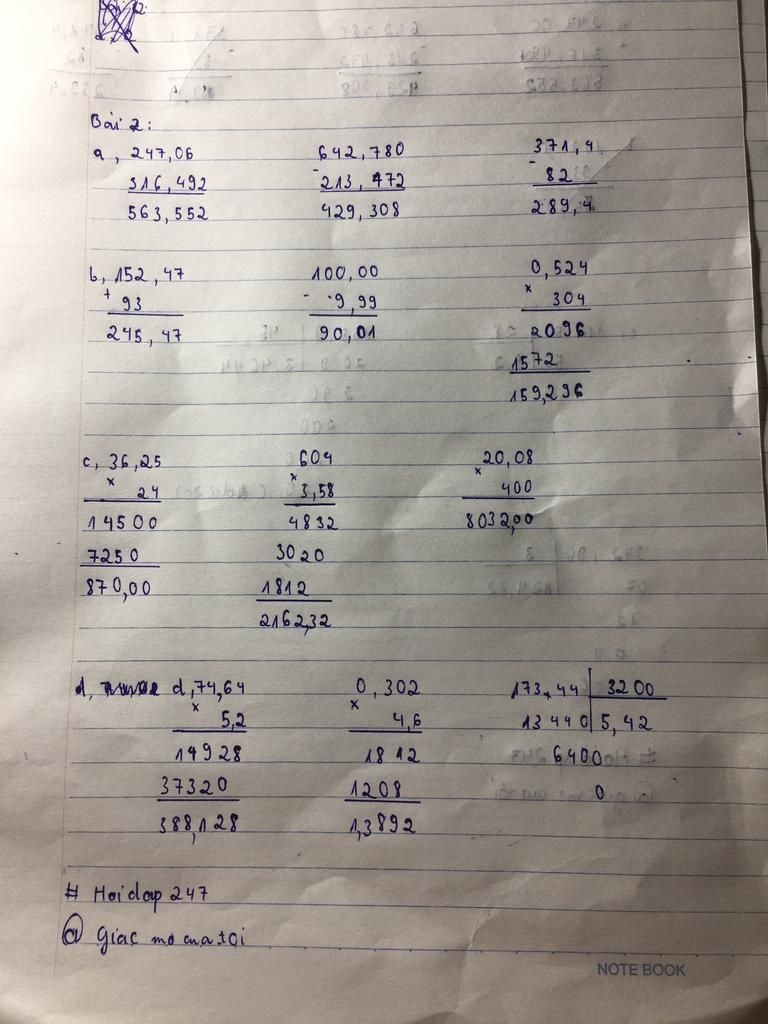 Bài 2:
a, 247,06 642,780 371,4
316,492 - 213,472 - 82
563,552 429,308 289,4
b, 152,47 100,00 0,524
+ 93 - 9,99 x 304
245,47 90,01 2096
1572
159,296
c, 36,25 604 20,08
x 24 x 3,58 x 400
14500 4832 8032,00
7250 3020
870,00 1812
2162,32
d, d, 74,64 0,302 173,44 3200
x 5,2 x 4,6 13440 5,42
14928 1812 6400
37320 1208 0
388,128 1,3892
# Hoidap 247
@ Giac mo cua toi
NOTE BOOK